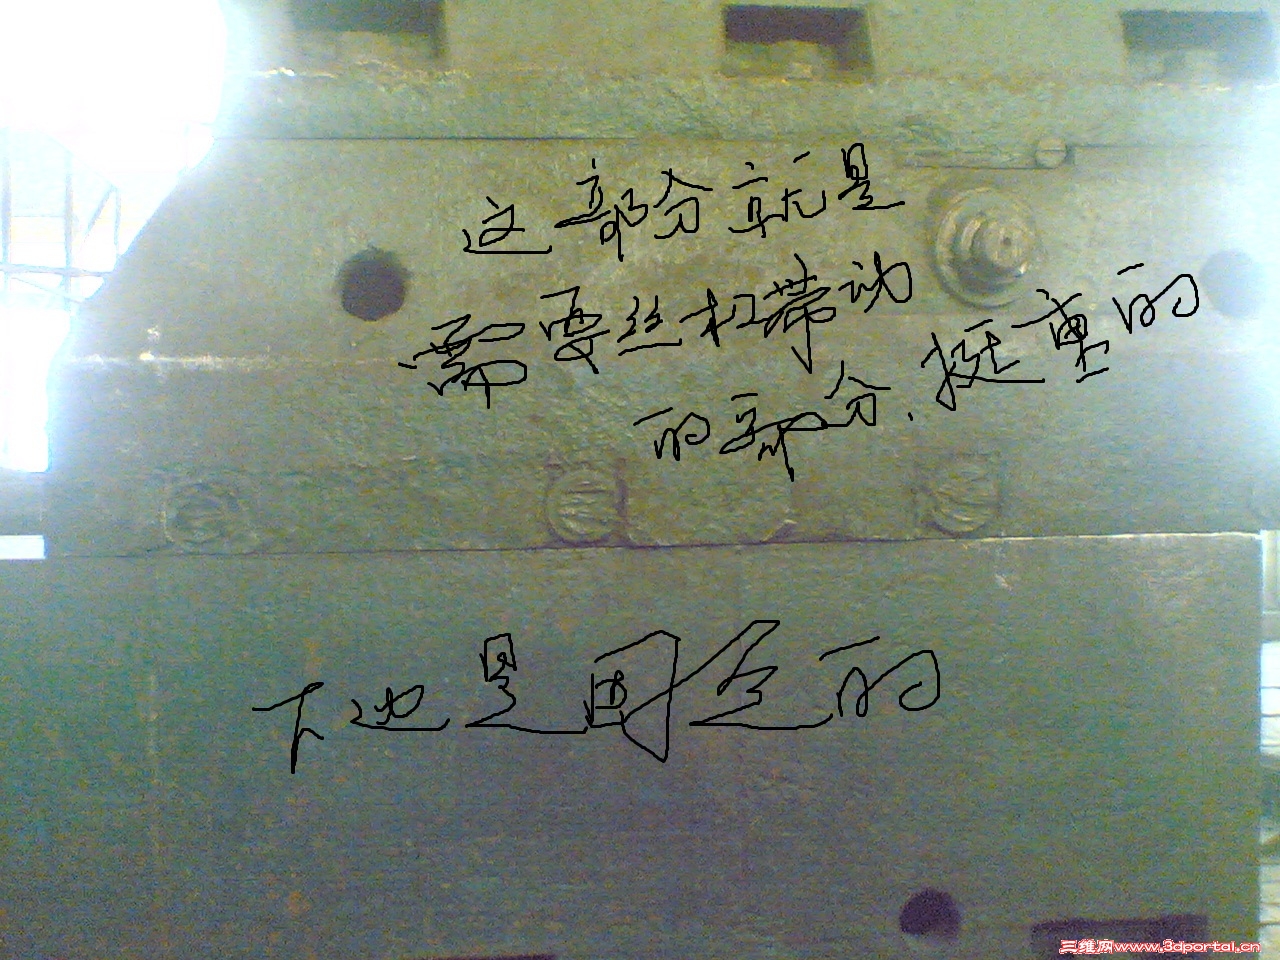 这部分就是
需要丝杠带动
的部分,挺重的
下边是固定的
三维网www.3dportal.cn